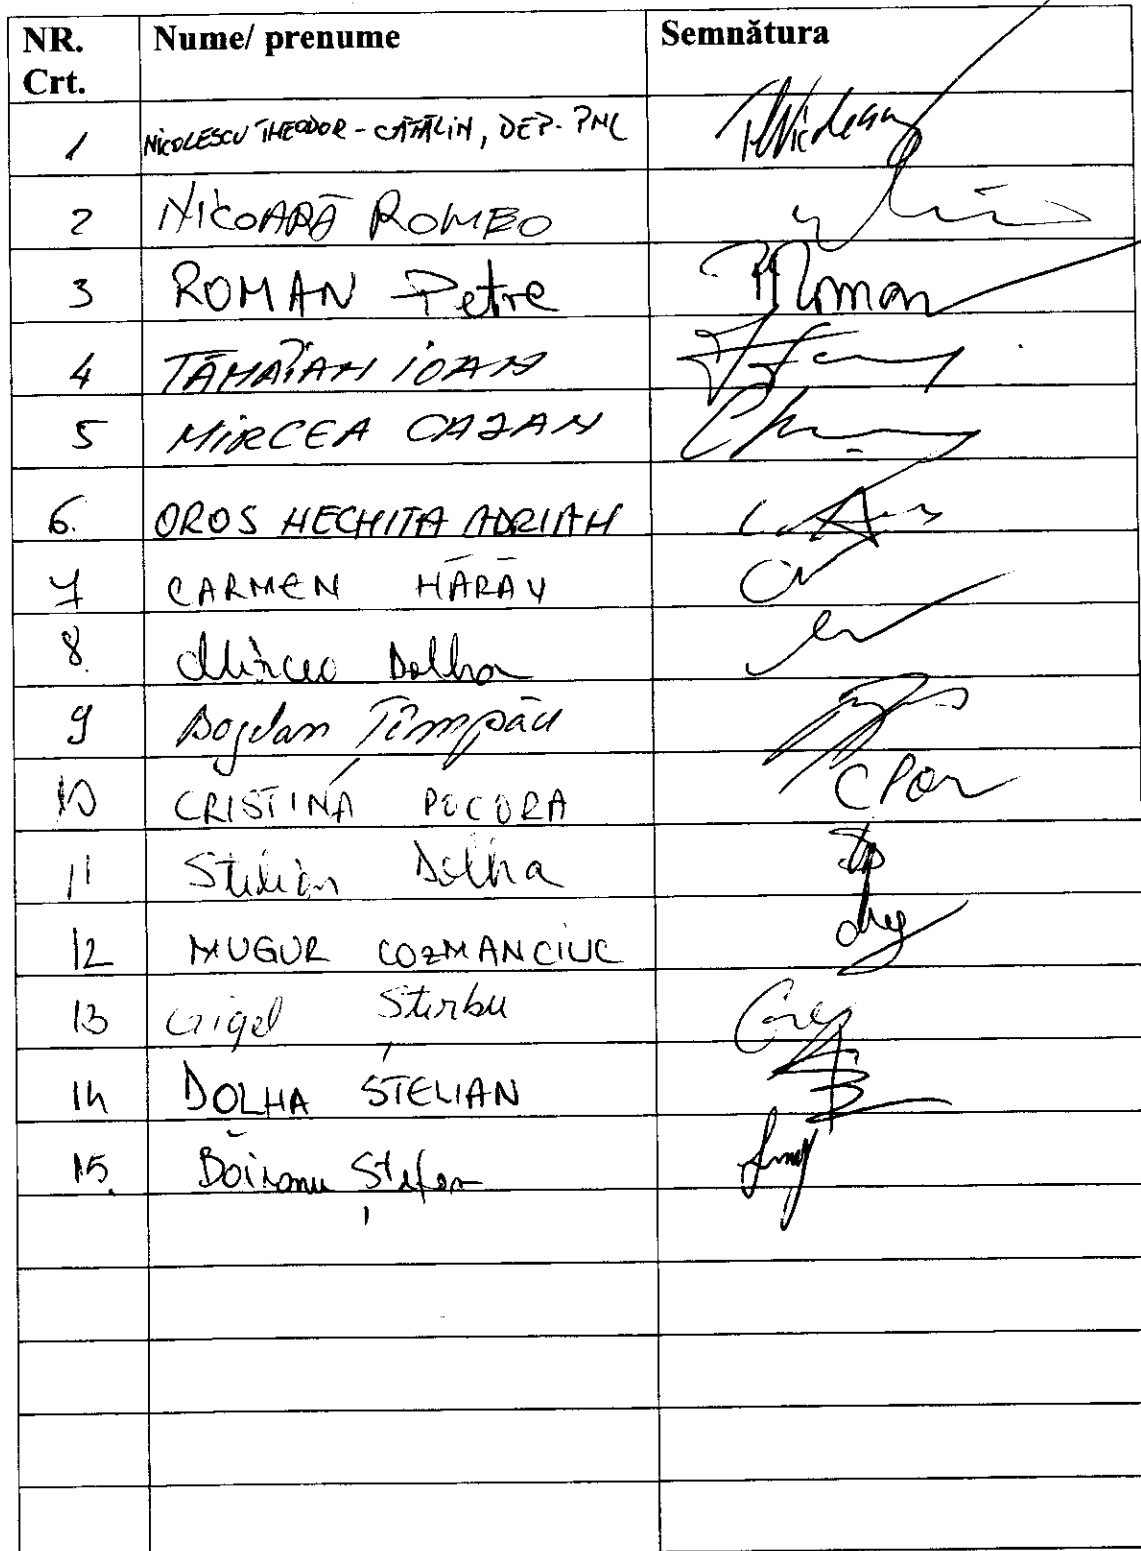 NR. Crt. Nume/ prenume Semnătura
1 NICOLESCU THEODOR - CĂTĂLIN, DEP. PNL
2 NICOARĂ ROMEO
3 ROMAN Petre P Roman
4 TĂMÂIAN IOAN
5 MIRCEA CAZAN
6. OROS NECHITA ADRIAN
7 CARMEN HĂRĂU
8. Mircea Dolha
9 Bogdan Țîmpău
10 CRISTINA POCORA
11 Stelian Dolha
12 MUGUR COZMANCIUC
13 Gigel Știrbu
14 DOLHA STELIAN
15. Băișanu Ștefan